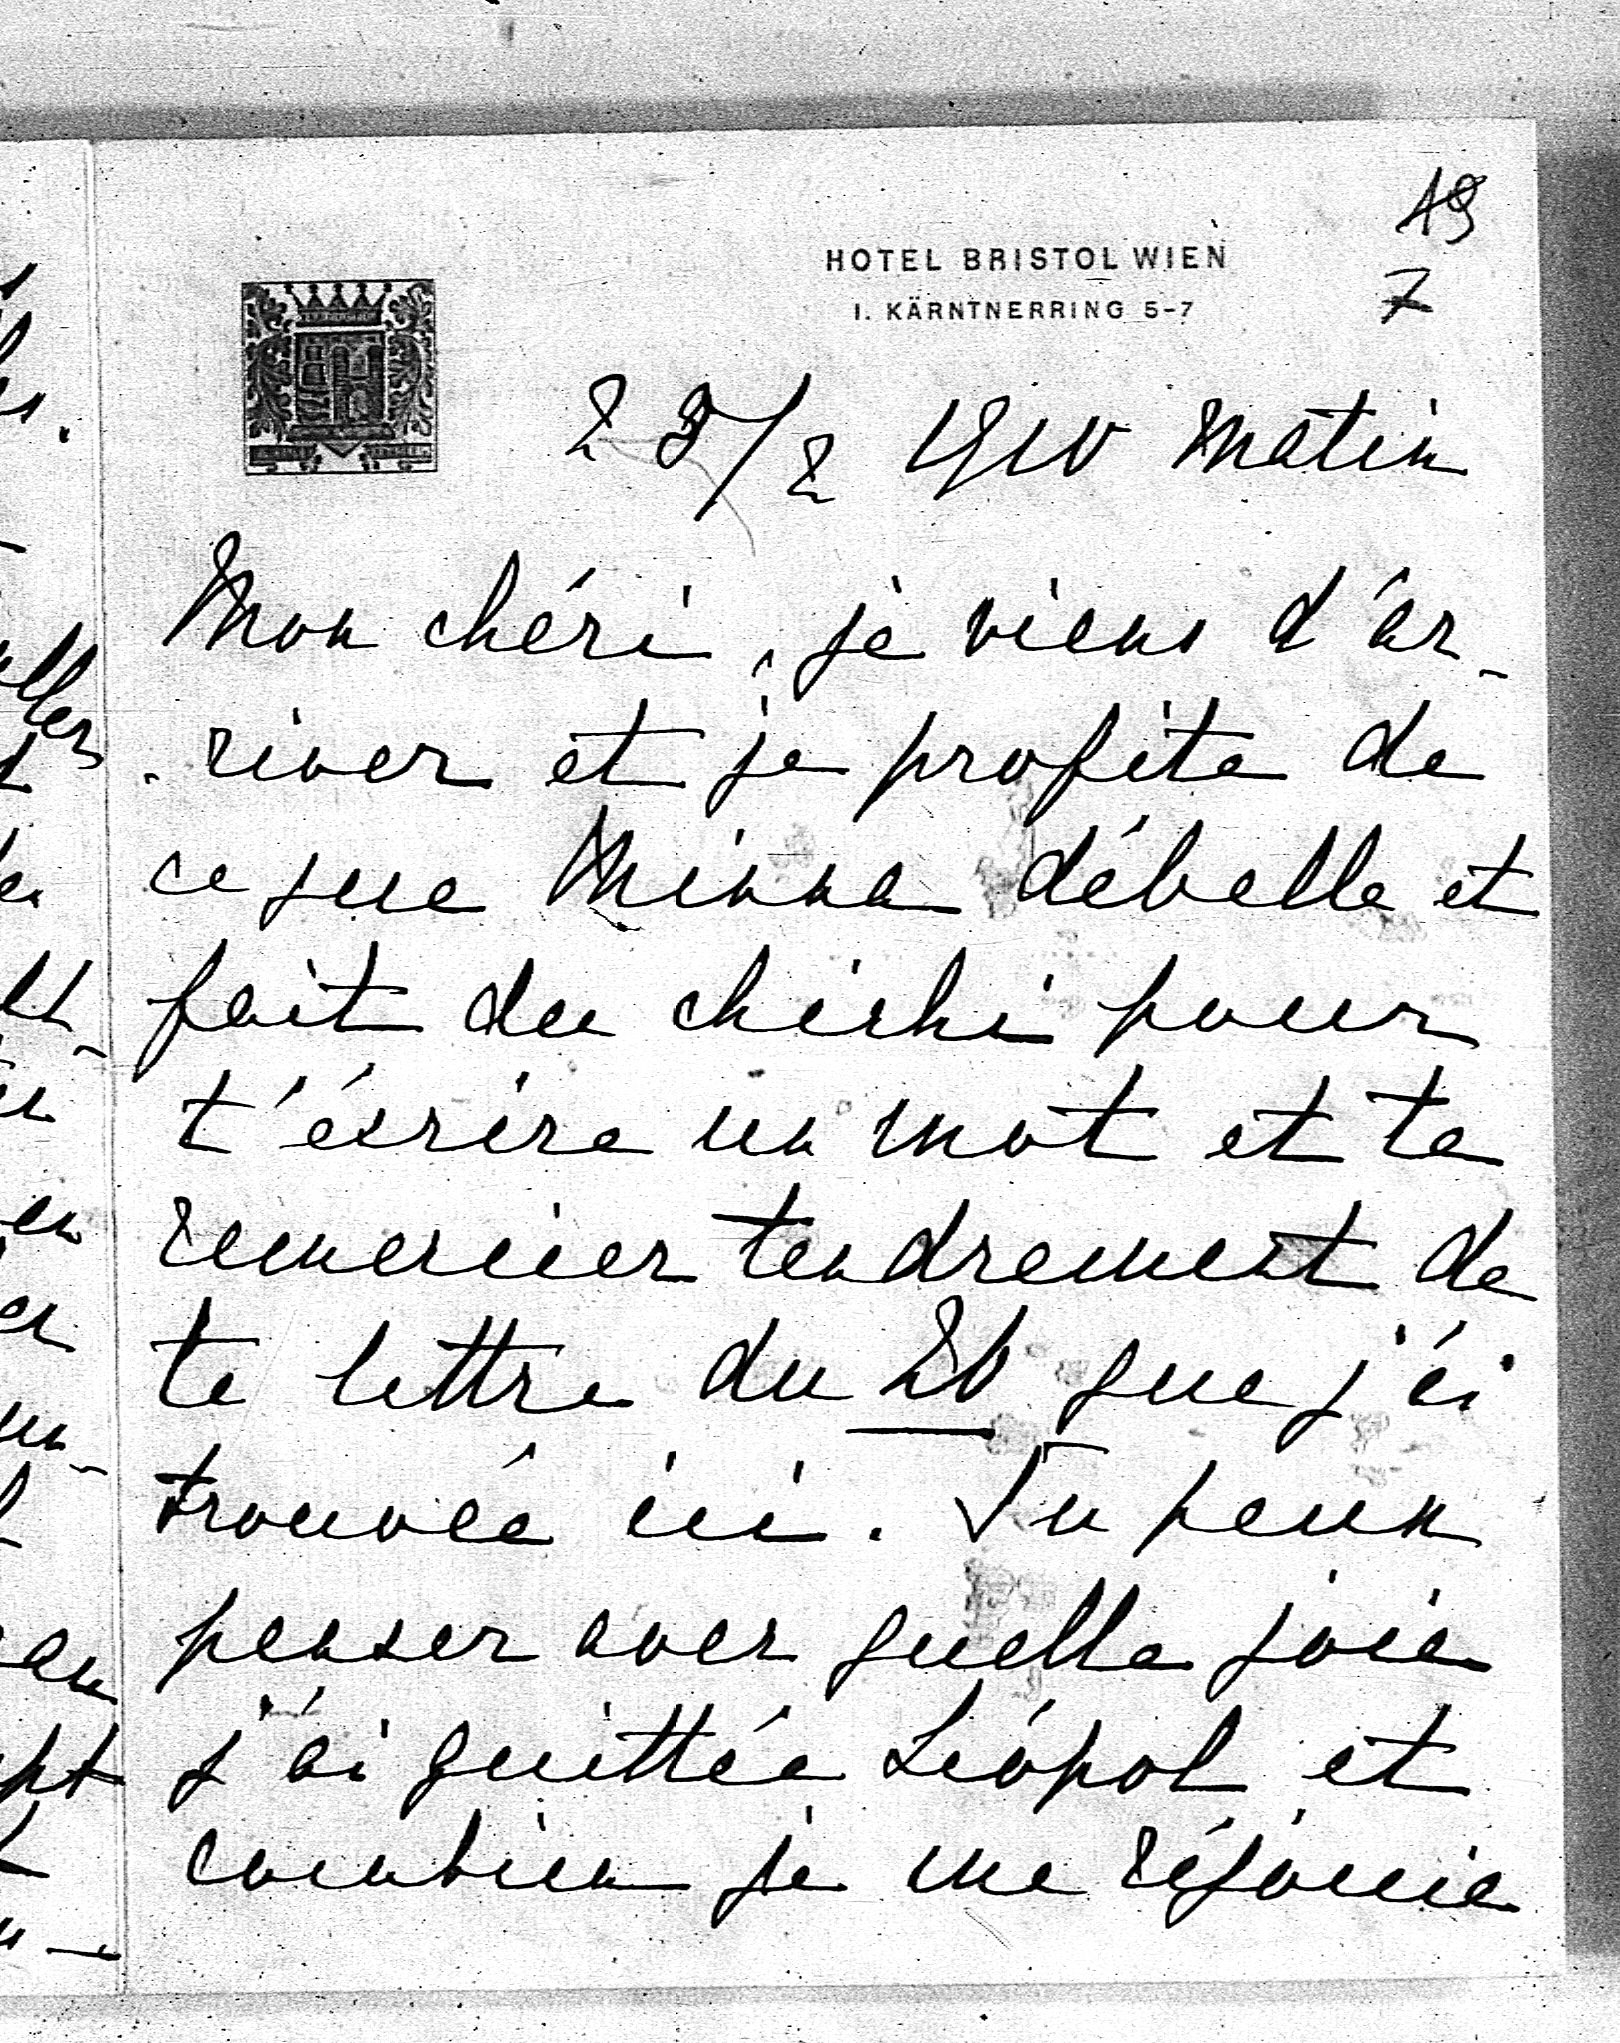 19
HOTEL BRISTOL WIEN
I. KÄRNTNERRING 5-7
7
23/2 1910 matin
Mon chéri, je viens d'ar-
river et je profite de
ce que Minna déballe et
fait du chichi pour
t'écrire un mot et te
remercier tendrement de
ta lettre du 20 que j'ai
trouvée ici. Tu peux
penser avec quelle joie
j'ai quittée Léopol et
combien je me réjouie